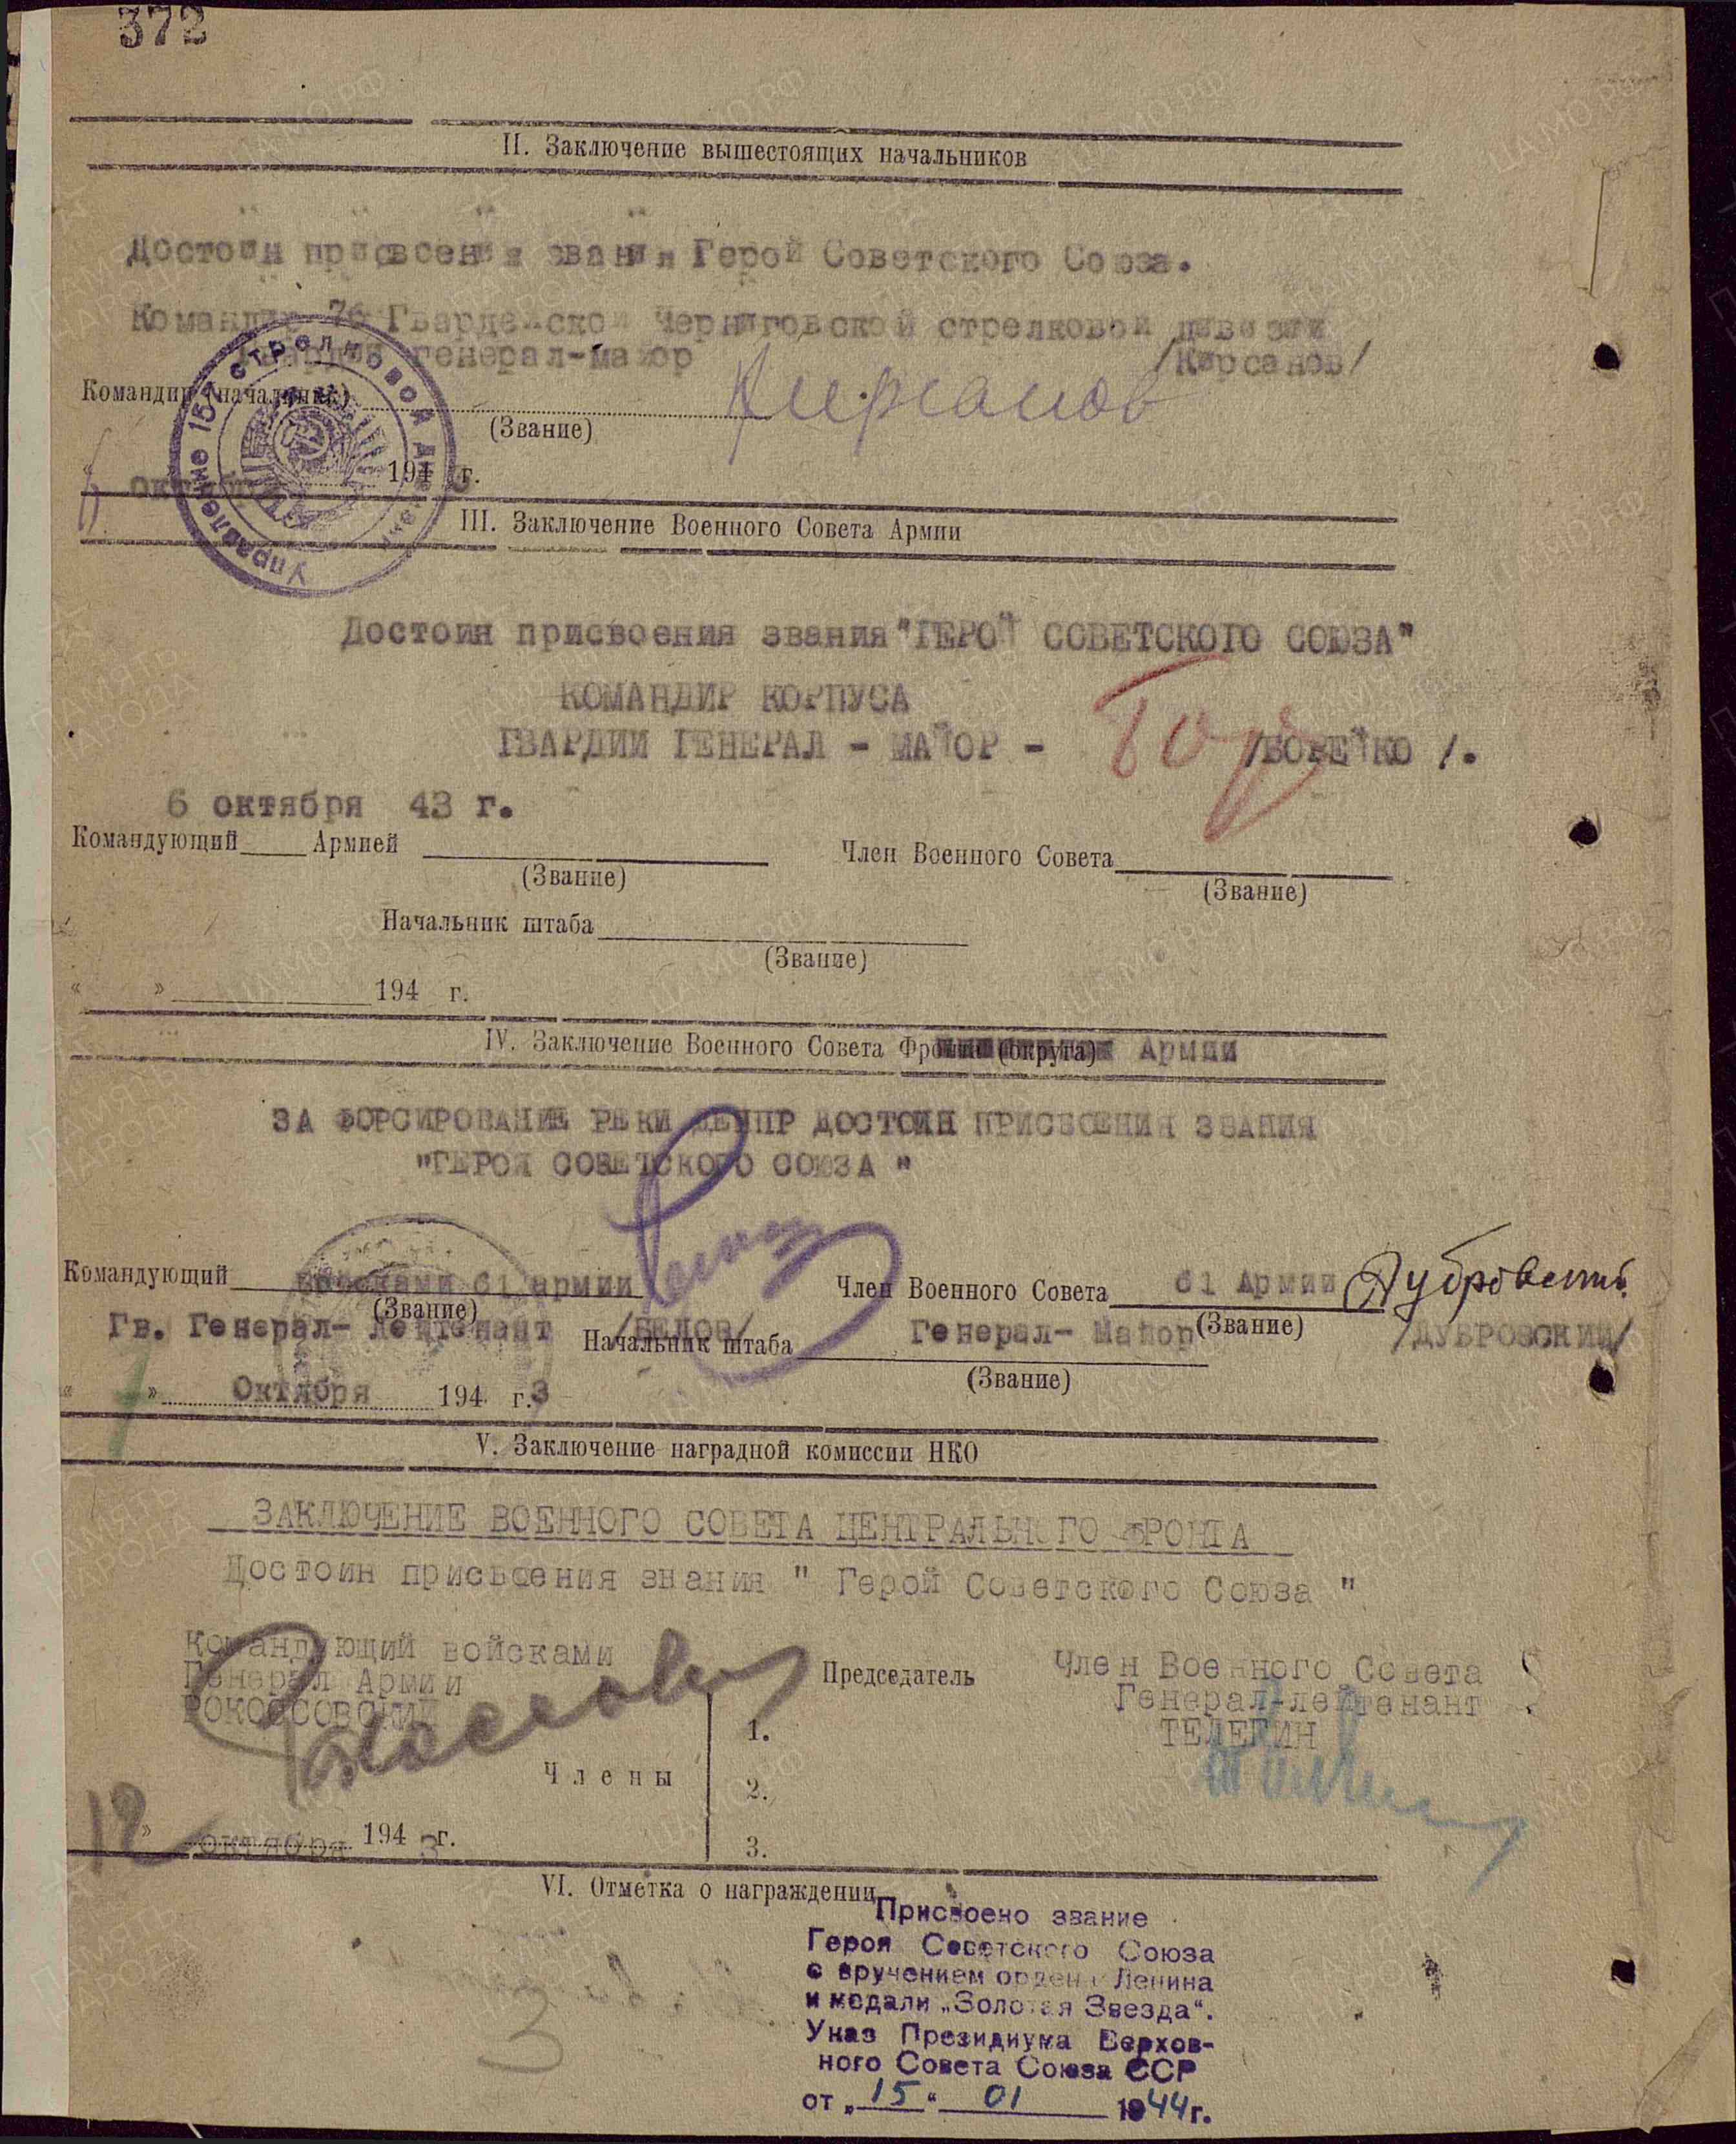 372
II. Заключение вышестоящих начальников
Достоин присвоения звания Герой Советского Союза.
Командир 76 Гвардейской Черниговской стрелковой дивизии
Гвардии генерал-майор /Кирсанов/
Командир (начальник) Кирсанов
(Звание)
6 октября 1943 г.
Управление 157 стрелковой дивизии
III. Заключение Военного Совета Армии
Достоин присвоения звания "ГЕРОЙ СОВЕТСКОГО СОЮЗА"
КОМАНДИР КОРПУСА
ГВАРДИИ ГЕНЕРАЛ - МАЙОР - /БОРЕЙКО /.
6 октября 43 г.
Командующий Армией Член Военного Совета
(Звание) (Звание)
Начальник штаба
(Звание)
" " 194 г.
IV. Заключение Военного Совета Фронта (округа) Армии
ЗА ФОРСИРОВАНИЕ РЕКИ ДНЕПР ДОСТОИН ПРИСВОЕНИЯ ЗВАНИЯ
"ГЕРОЯ СОВЕТСКОГО СОЮЗА "
Командующий войсками 61 армии Член Военного Совета 61 Армии Дубровский
(Звание) (Звание)
Гв. Генерал- Лейтенант /БЕЛОВ/ Начальник штаба Генерал- Майор /ДУБРОВСКИЙ/
(Звание)
" " Октября 194 г.3
V. Заключение наградной комиссии НКО
ЗАКЛЮЧЕНИЕ ВОЕННОГО СОВЕТА ЦЕНТРАЛЬНОГО ФРОНТА
Достоин присвоения звания " Герой Советского Союза "
Командующий войсками Член Военного Совета
Генерал Армии Председатель Генерал-лейтенант
РОКОССОВСКИЙ ТЕЛЕГИН
1.
Члены 2.
12 " октября 194 3 г. 3.
VI. Отметка о награждении
Присвоено звание
Героя Советского Союза
с вручением ордена Ленина
и медали „Золотая Звезда“.
Указ Президиума Верхов-
ного Совета Союза ССР
от „15“ 01 1944 г.
3